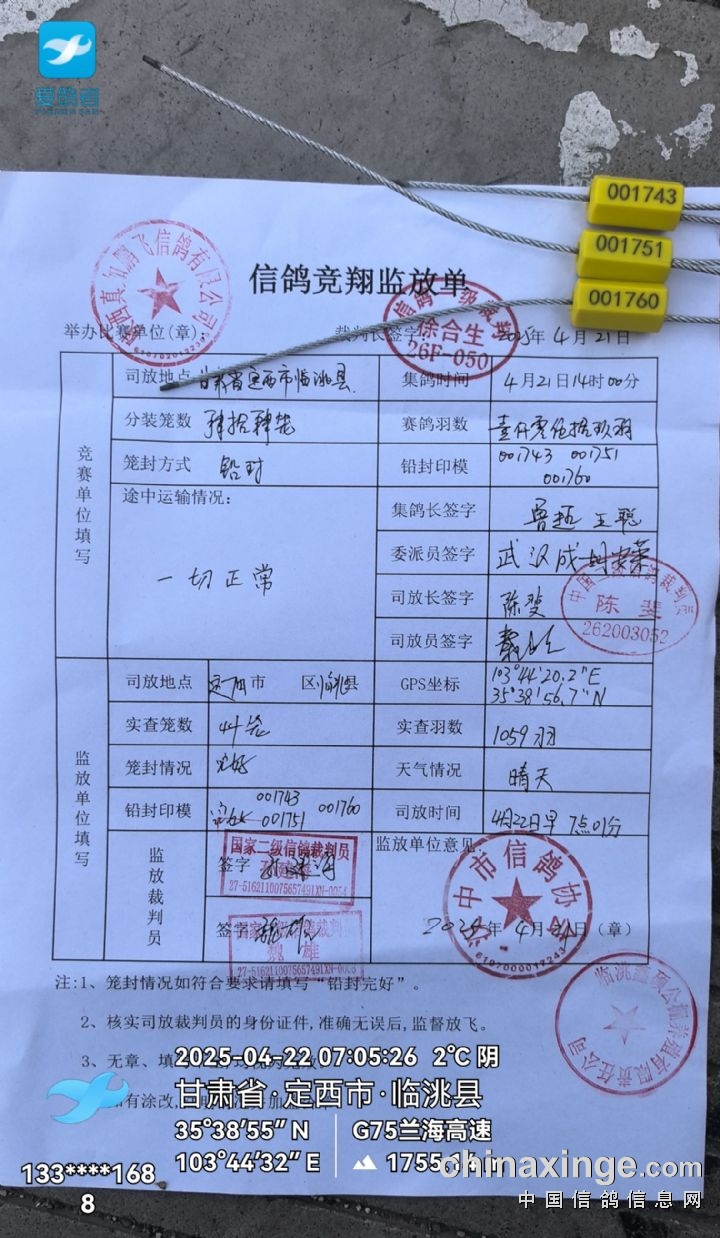 爱鸽者
001743
001751
001760
信鸽竞翔监放单
信鸽二级裁判
徐合生
26F-050
举办比赛单位(章):
裁判长签字
2025年 4月 21日
竞赛单位填写
司放地点 甘肃省定西市临洮县 集鸽时间 4月21日14时00分
分装笼数 肆拾肆笼 赛鸽羽数
笼封方式 铅封 铅封印模 001743 001751
001760
途中运输情况: 一切正常
集鸽长签字 鲁超 王聪
委派员签字
司放长签字 陈斐
司放员签字
中国二级信鸽裁判员
陈斐
262003052
监放单位填写
司放地点 定西市 区临洮县 GPS坐标 103°44′20.2″E
35°38′56.7″N
实查笼数 44笼 实查羽数 1059羽
笼封情况 完好 天气情况 晴天
铅封印模 完好 001743 001760
001751
司放时间 4月22日早7点01分
监放裁判员
国家二级信鸽裁判员
签字
27-5162110075657491XN-0054
签字
国家二级信鸽裁判员
魏雄
监放单位意见:
汉中市信鸽协会
6107000012243
2025年 4月 21日(章)
注:1、笼封情况如符合要求请填写“铅封完好”。
2、核实司放裁判员的身份证件,准确无误后,监督放飞。
3、无章、填
有涂改,
2025-04-22 07:05:26 2℃ 阴
甘肃省·定西市·临洮县
35°38′55″ N G75兰海高速
103°44′32″ E
133****168
8
chinaxinge.com
中国信鸽信息网